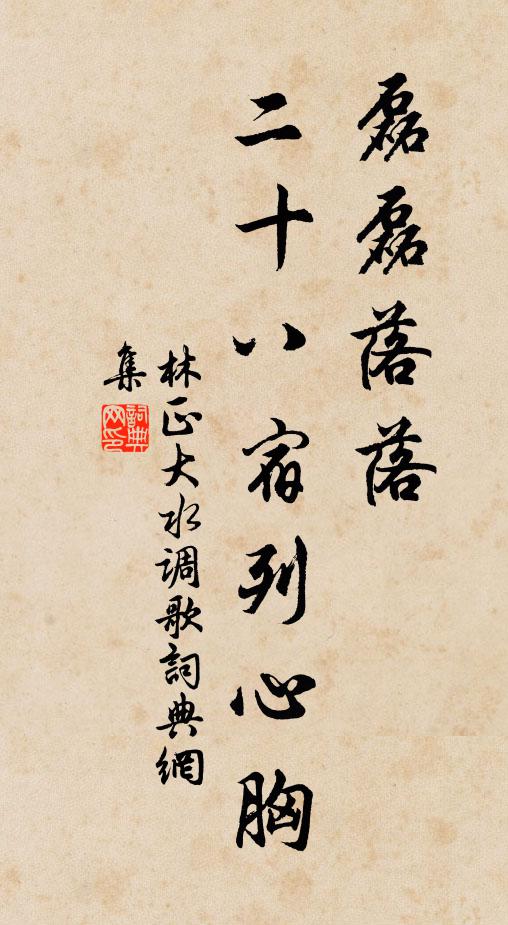 磊磊落落
二十八宿列心胸
林正大水调歌詞典網
集
詞典
网印